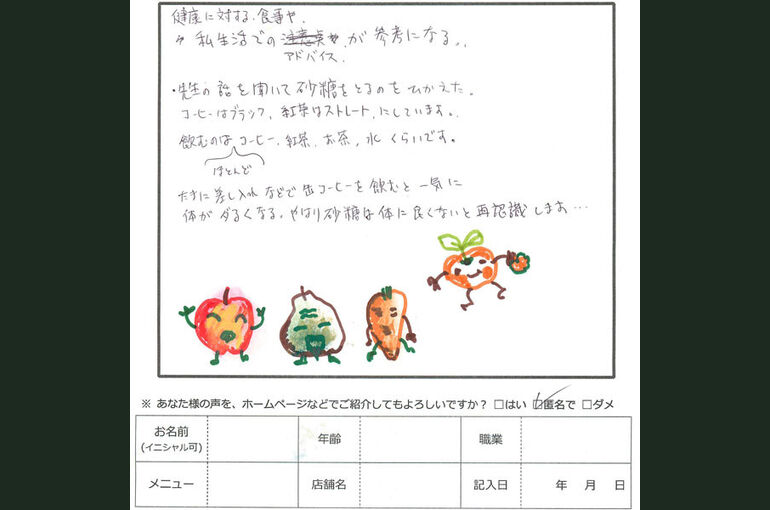 健康に対する食事や、
〃 私生活での注意点や、が参考になる。
アドバイス、
・先生の話を聞いて砂糖をとるのをひかえた。
コーヒーはブラック、紅茶はストレートにしています。
飲むのはコーヒー、紅茶、お茶、水くらいです。
ほとんど
たまに差し入れなどで缶コーヒーを飲むと一気に
体がダるくなる。やはり砂糖は体に良くないと再認識します…
※ あなた様の声を、ホームページなどでご紹介してもよろしいですか？ □はい □匿名で □ダメ
お名前 年齢 職業
(イニシャル可)
メニュー 店舗名 記入日 年 月 日